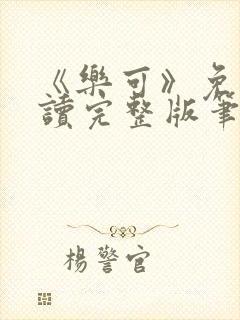 《樂可》免
讀完整版筆
楊警官